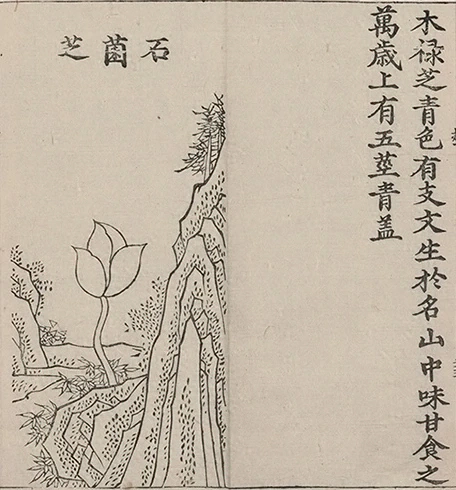 木禄芝青色有支文生於名山中味甘食之
萬歳上有五莖青盖
石菌芝